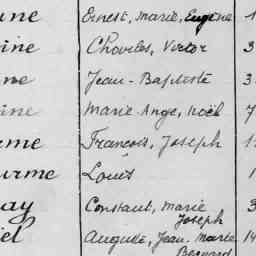 une Ernest, Marie, Eugène 1
ine Charles, Victor 3
ne Jean-Baptiste 3
ine Marie Ange, Noël 7
rme François, Joseph 1
urme Louis 1
ay Constant, Marie 3
Joseph
iel Auguste, Jean-Marie 14
Bernard